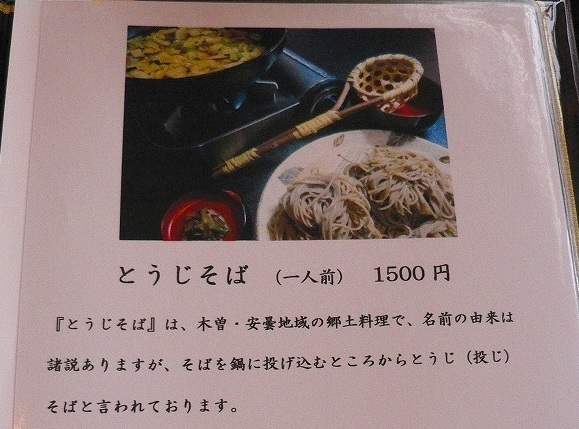 とうじそば （一人前） 1500 円
『とうじそば』は、木曽・安曇地域の郷土料理で、名前の由来は
諸説ありますが、そばを鍋に投げ込むところからとうじ（投じ）
そばと言われております。